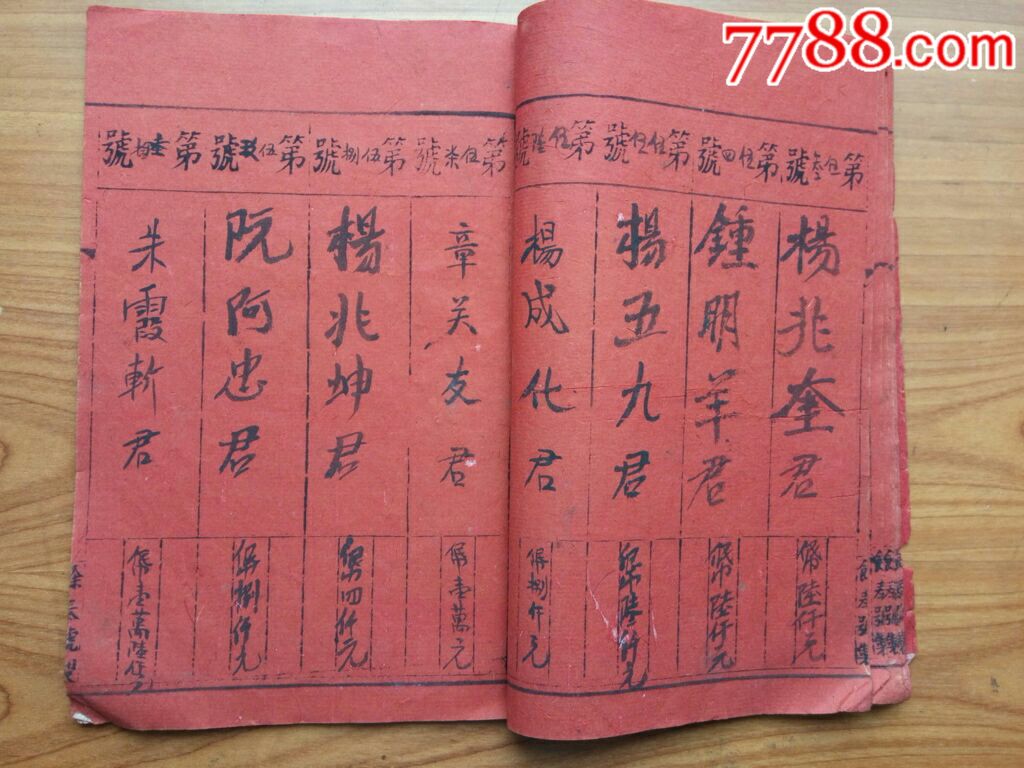 7788.com
第伍叁號
楊兆奎君
俻陸仟元
第伍四號
鍾明羊君
俻幣陸仟元
第伍伍號
楊五九君
俻幣陸仟元
第伍陸號
楊成化君
俻捌仟元
第伍柒號
章关友君
俻壹萬元
第伍捌號
楊兆坤君
俻幣四仟元
第伍玖號
阮阿忠君
俻捌仟元
第陸拾號
朱霞斬君
俻壹萬陸仟元